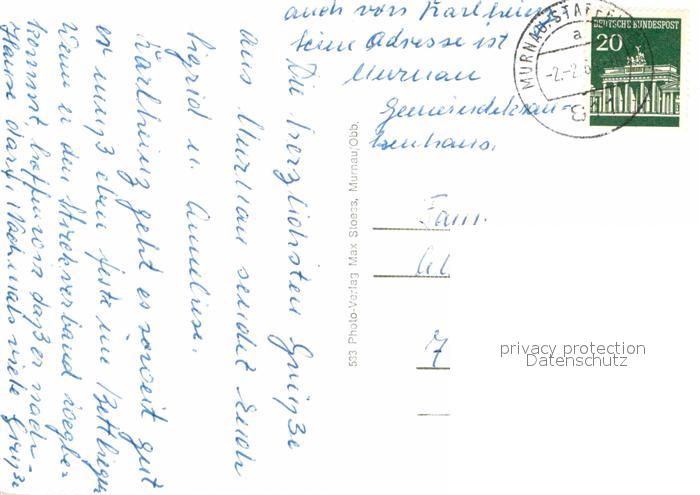 Die herzlichsten Grüße
aus Murnau sendet Euch
Ingrid u. Anneliese.
Karlheinz geht es soweit gut
er muß eben feste im Bett liegen
Wenn er den Streckverband wegbe-
kommt, hoffen wir daß er nach-
Hause darf. Nochmals viele Grüße
auch von Karlheinz
seine Adresse ist
Murnau
Gemeindekran-
kenhaus.
533 Photo-Verlag Max Stoess, Murnau/Obb.
Fam.
7
MURNAU-STAFF
a
-2.-2.6
DEUTSCHE BUNDESPOST
20
privacy protection
Datenschutz